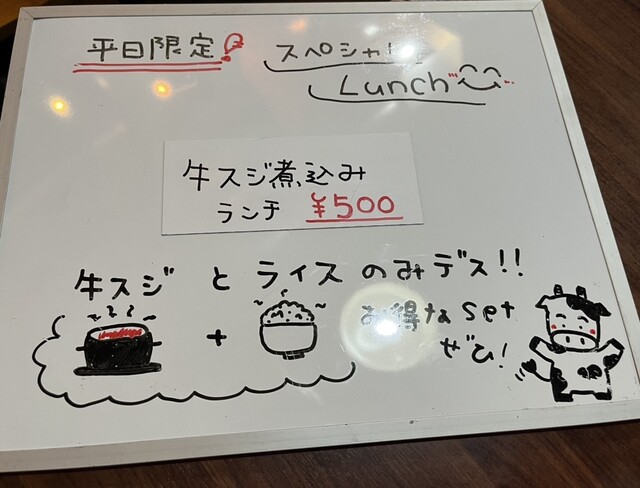 平日限定!
スペシャル
Lunch
牛スジ煮込み
ランチ ¥500
牛スジ と ライス のみデス!!
+
お得なset
ぜひ!